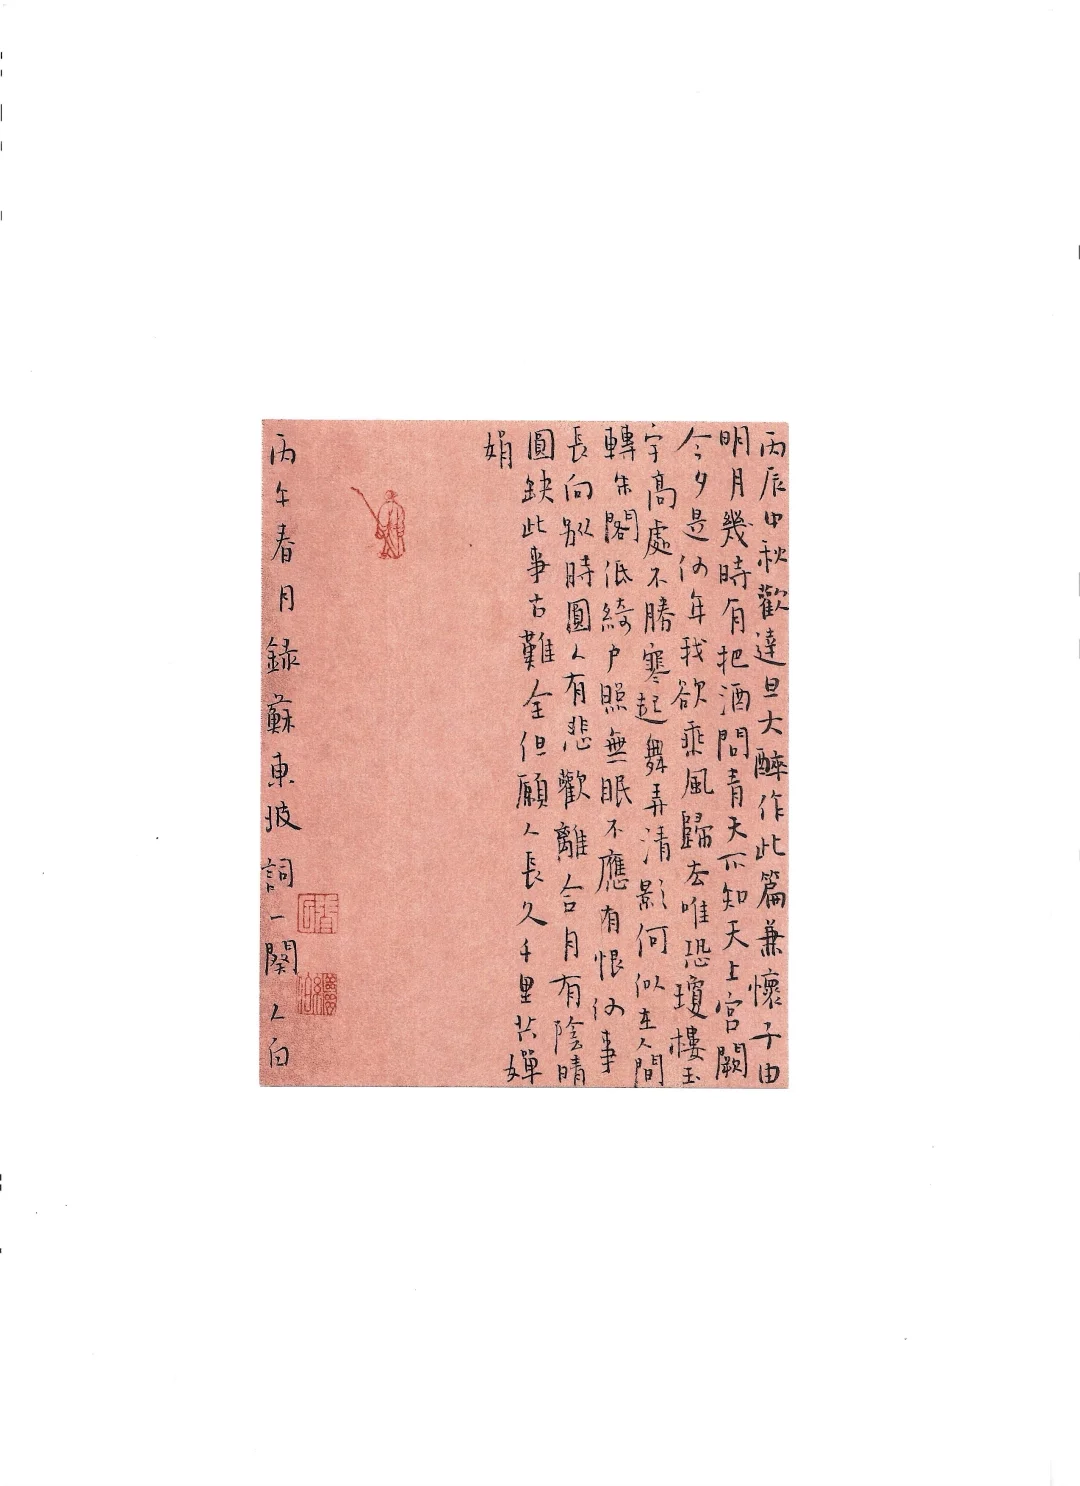 丙辰中秋歡達旦大醉作此篇兼懷子由
明月幾時有把酒問青天不知天上宮闕
今夕是何年我欲乘風歸去唯恐瓊樓玉
宇高處不勝寒起舞弄清影何似在人間
轉朱閣低綺戶照無眠不應有恨何事
長向別時圓人有悲歡離合月有陰晴
圓缺此事古難全但願人長久千里共嬋
娟
丙午春月錄蘇東坡詞一闋人白